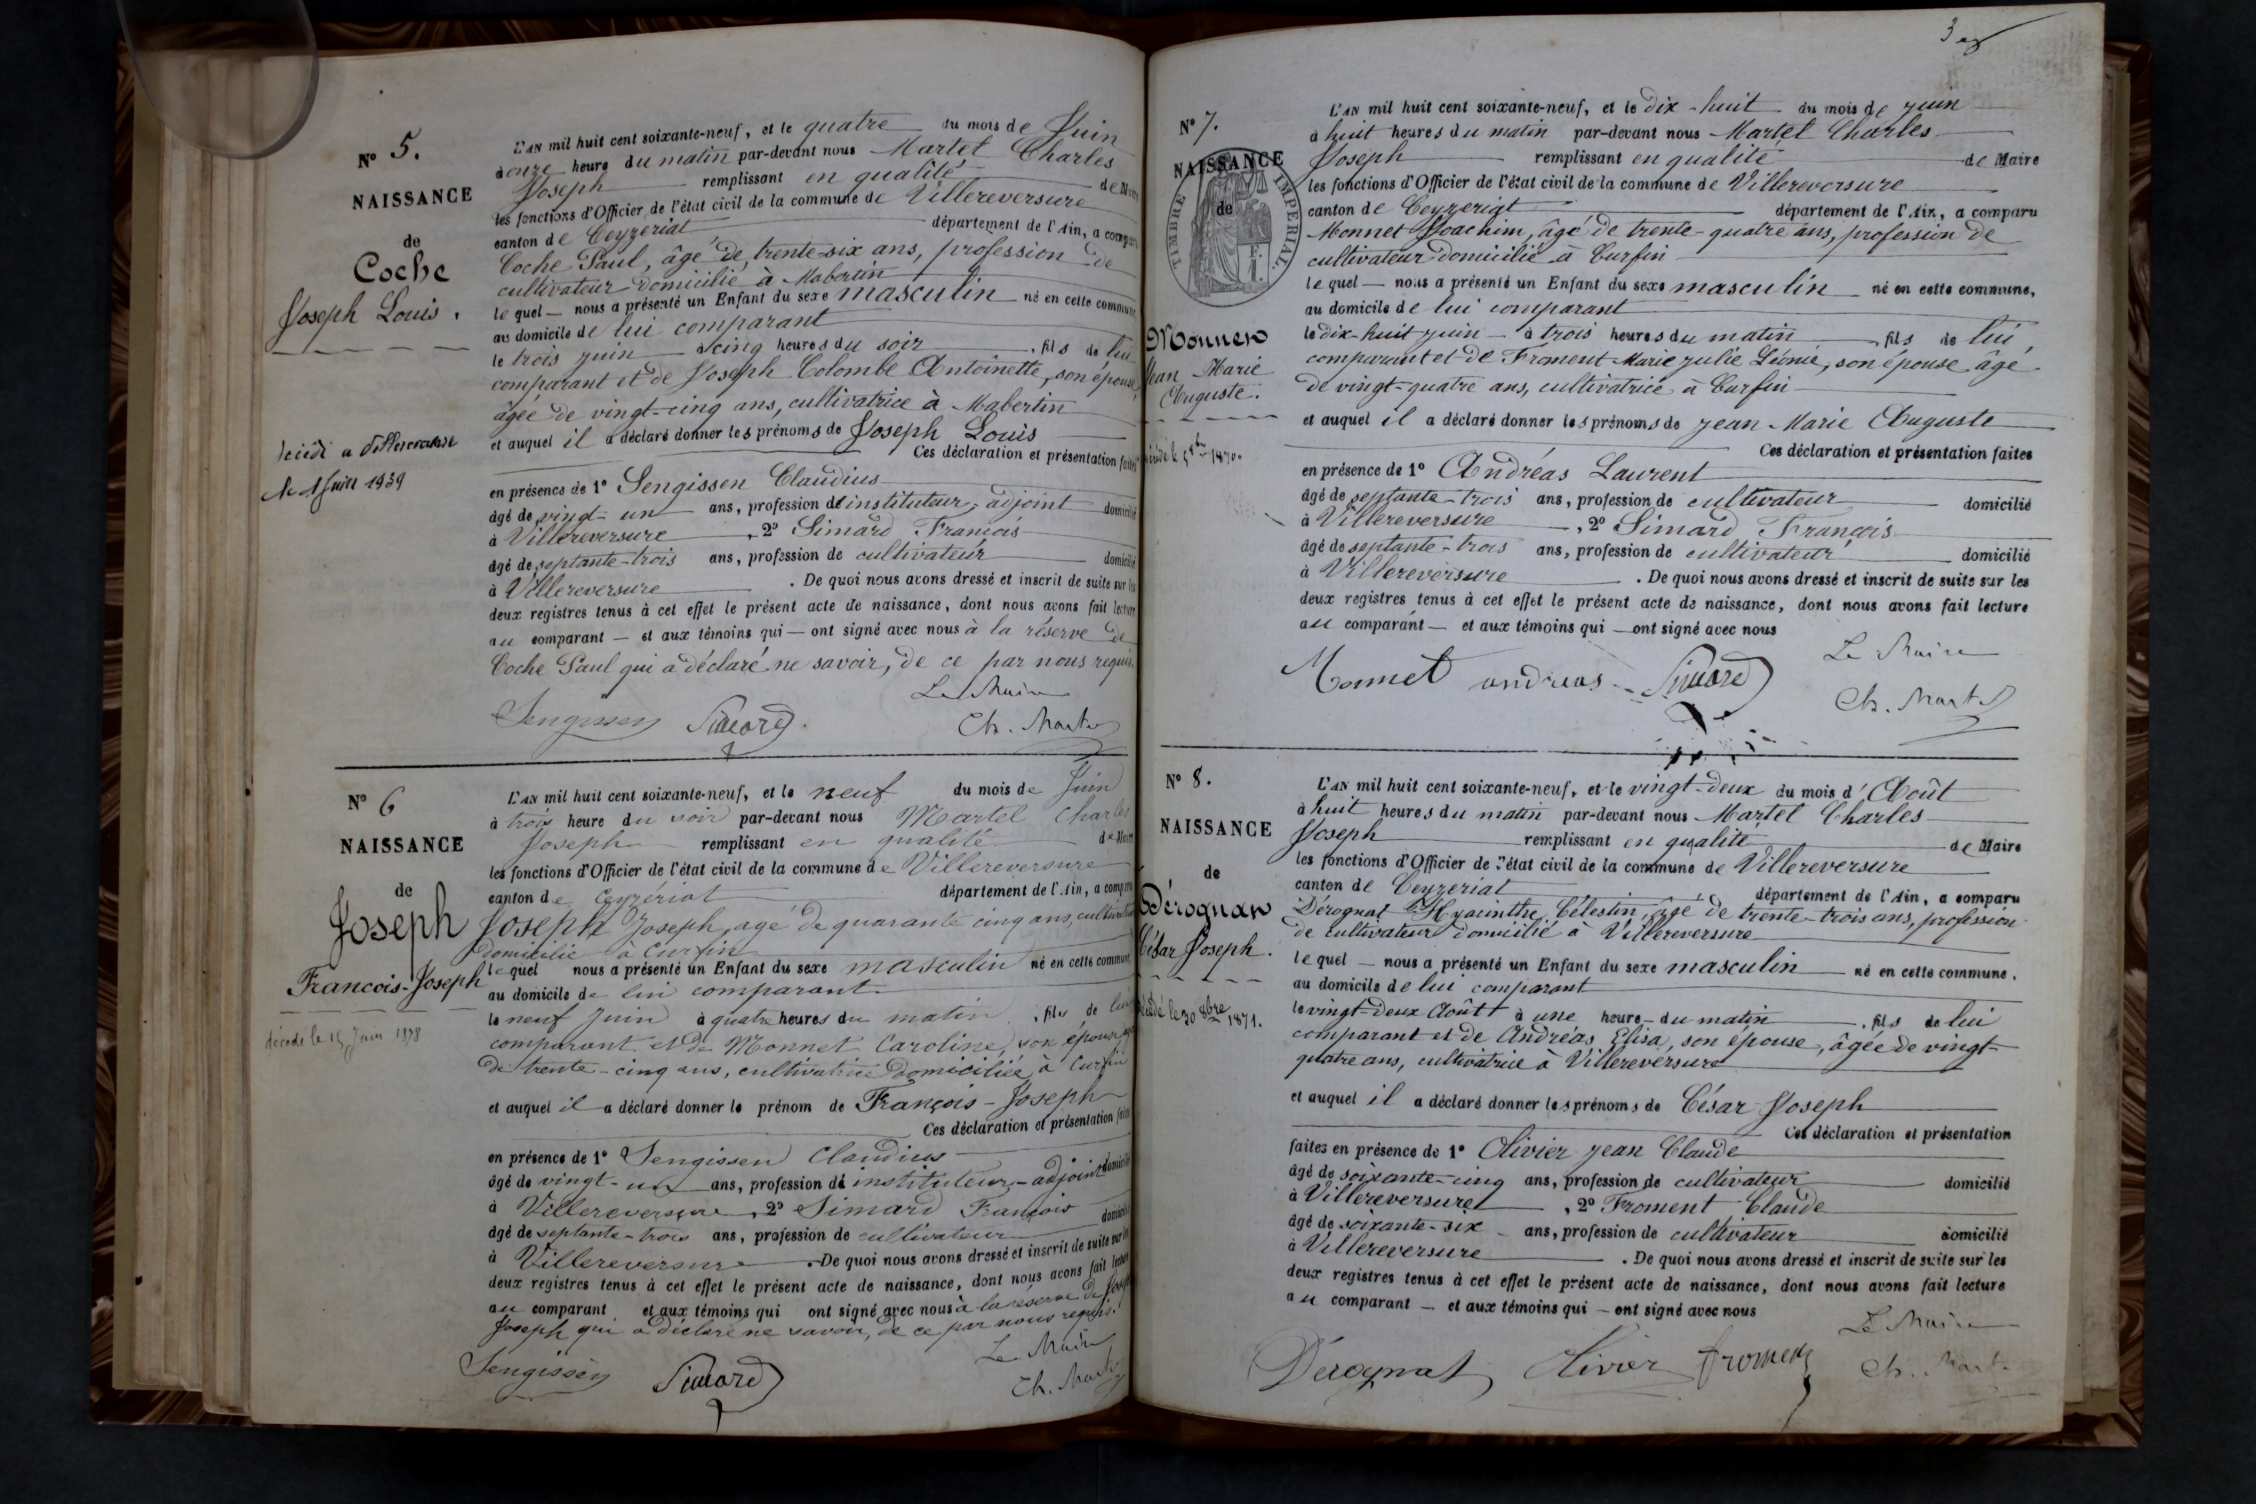 N° 5.
NAISSANCE
de
Coche
Joseph Louis.
décédé a Villereversure
le 1 Juin 1939
L'AN mil huit cent soixante-neuf, et le quatre du mois de Juin
à onze heure du matin par-devant nous Martel Charles
Joseph remplissant en qualité de Maire
les fonctions d'Officier de l'état civil de la commune de Villereversure
canton de Ceyzeriat département de l'Ain, a comparu
Coche Paul, âgé de trente-six ans, profession de
cultivateur domicilié à Mabertin
lequel — nous a présenté un Enfant du sexe masculin né en cette commune
au domicile de lui comparant
le trois juin à cinq heures du soir, fils de lui
comparant et de Joseph Colombe Antoinette, son épouse,
âgée de vingt-cinq ans, cultivatrice à Mabertin
et auquel il a déclaré donner les prénoms de Joseph Louis
Ces déclaration et présentation faites
en présence de 1° Sengissen Claudius
âgé de vingt-un ans, profession d'instituteur, adjoint domicilié
à Villereversure, 2° Simard François
âgé de septante-trois ans, profession de cultivateur domicilié
à Villereversure. De quoi nous avons dressé et inscrit de suite sur les
deux registres tenus à cet effet le présent acte de naissance, dont nous avons fait lecture
au comparant — et aux témoins qui — ont signé avec nous à la réserve de
Coche Paul qui a déclaré ne savoir, de ce par nous requis.
Le Maire
Sengissen Simard. Ch. Martel
N° 6
NAISSANCE
de
Joseph
François-Joseph
décédé le 15 Juin 1878
L'AN mil huit cent soixante-neuf, et le neuf du mois de Juin
à trois heure du soir par-devant nous Martel Charles
Joseph remplissant en qualité de Maire
les fonctions d'Officier de l'état civil de la commune de Villereversure
canton de Ceyzériat département de l'Ain, a comparu
Joseph Joseph, agé de quarante cinq ans, cultivateur
domicilié à Curfin
lequel nous a présenté un Enfant du sexe masculin né en cette commune
au domicile de lui comparant
le neuf Juin à quatre heures du matin, fils de lui
comparant et de Monnet Caroline, son épouse, agée
de trente-cinq ans, cultivatrice domiciliée à Curfin
et auquel il a déclaré donner le prénom de François-Joseph
Ces déclaration et présentation faites
en présence de 1° Sengissen Claudius
âgé de vingt-un ans, profession d'instituteur-adjoint domicilié
à Villereversure, 2° Simard François
âgé de septante-trois ans, profession de cultivateur domicilié
à Villereversure. De quoi nous avons dressé et inscrit de suite sur les
deux registres tenus à cet effet le présent acte de naissance, dont nous avons fait lecture
au comparant et aux témoins qui ont signé avec nous à la réserve de Joseph
Joseph qui a déclaré ne savoir, de ce par nous requis.
Le Maire
Sengissen Simard Ch. Martel
3
N° 7.
NAISSANCE
de
TIMBRE IMPERIAL
Monnet
Jean Marie
Auguste.
décédé le 5 1870.
L'AN mil huit cent soixante-neuf, et le dix-huit du mois de juin
à huit heures du matin par-devant nous Martel Charles
Joseph remplissant en qualité de Maire
les fonctions d'Officier de l'état civil de la commune de Villereversure
canton de Ceyzeriat département de l'Ain, a comparu
Monnet Joachim, âgé de trente-quatre ans, profession de
cultivateur domicilié à Curfin
lequel — nous a présenté un Enfant du sexe masculin né en cette commune,
au domicile de lui comparant
le dix-huit juin à trois heures du matin, fils de lui
comparant et de Froment Marie Julie Léonie, son épouse âgé
de vingt-quatre ans, cultivatrice à Curfin
et auquel il a déclaré donner les prénoms de Jean Marie Auguste
Ces déclaration et présentation faites
en présence de 1° Andréas Laurent
âgé de septante-trois ans, profession de cultivateur domicilié
à Villereversure, 2° Simard François
âgé de septante-trois ans, profession de cultivateur domicilié
à Villereversure. De quoi nous avons dressé et inscrit de suite sur les
deux registres tenus à cet effet le présent acte de naissance, dont nous avons fait lecture
au comparant — et aux témoins qui — ont signé avec nous
Le Maire
Monnet andreas Simard Ch. Martel
N° 8.
NAISSANCE
de
Dérognat
César Joseph.
décédé le 30 8bre 1871.
L'AN mil huit cent soixante-neuf, et le vingt-deux du mois d'Août
à huit heures du matin par-devant nous Martel Charles
Joseph remplissant en qualité de Maire
les fonctions d'Officier de l'état civil de la commune de Villereversure
canton de Ceyzeriat département de l'Ain, a comparu
Dérognat Hyacinthe Célestin, âgé de trente-trois ans, profession
de cultivateur domicilié à Villereversure
lequel — nous a présenté un Enfant du sexe masculin né en cette commune.
au domicile de lui comparant
le vingt-deux Août à une heure du matin, fils de lui
comparant et de Andréas Elisa, son épouse, âgée de vingt-
quatre ans, cultivatrice à Villereversure
et auquel il a déclaré donner les prénoms de César Joseph
Ces déclaration et présentation
faites en présence de 1° Olivier Jean Claude
âgé de soixante-cinq ans, profession de cultivateur domicilié
à Villereversure, 2° Froment Claude
âgé de soixante-six ans, profession de cultivateur domicilié
à Villereversure. De quoi nous avons dressé et inscrit de suite sur les
deux registres tenus à cet effet le présent acte de naissance, dont nous avons fait lecture
au comparant — et aux témoins qui — ont signé avec nous
Le Maire
Dérognat Olivier froment Ch. Martel